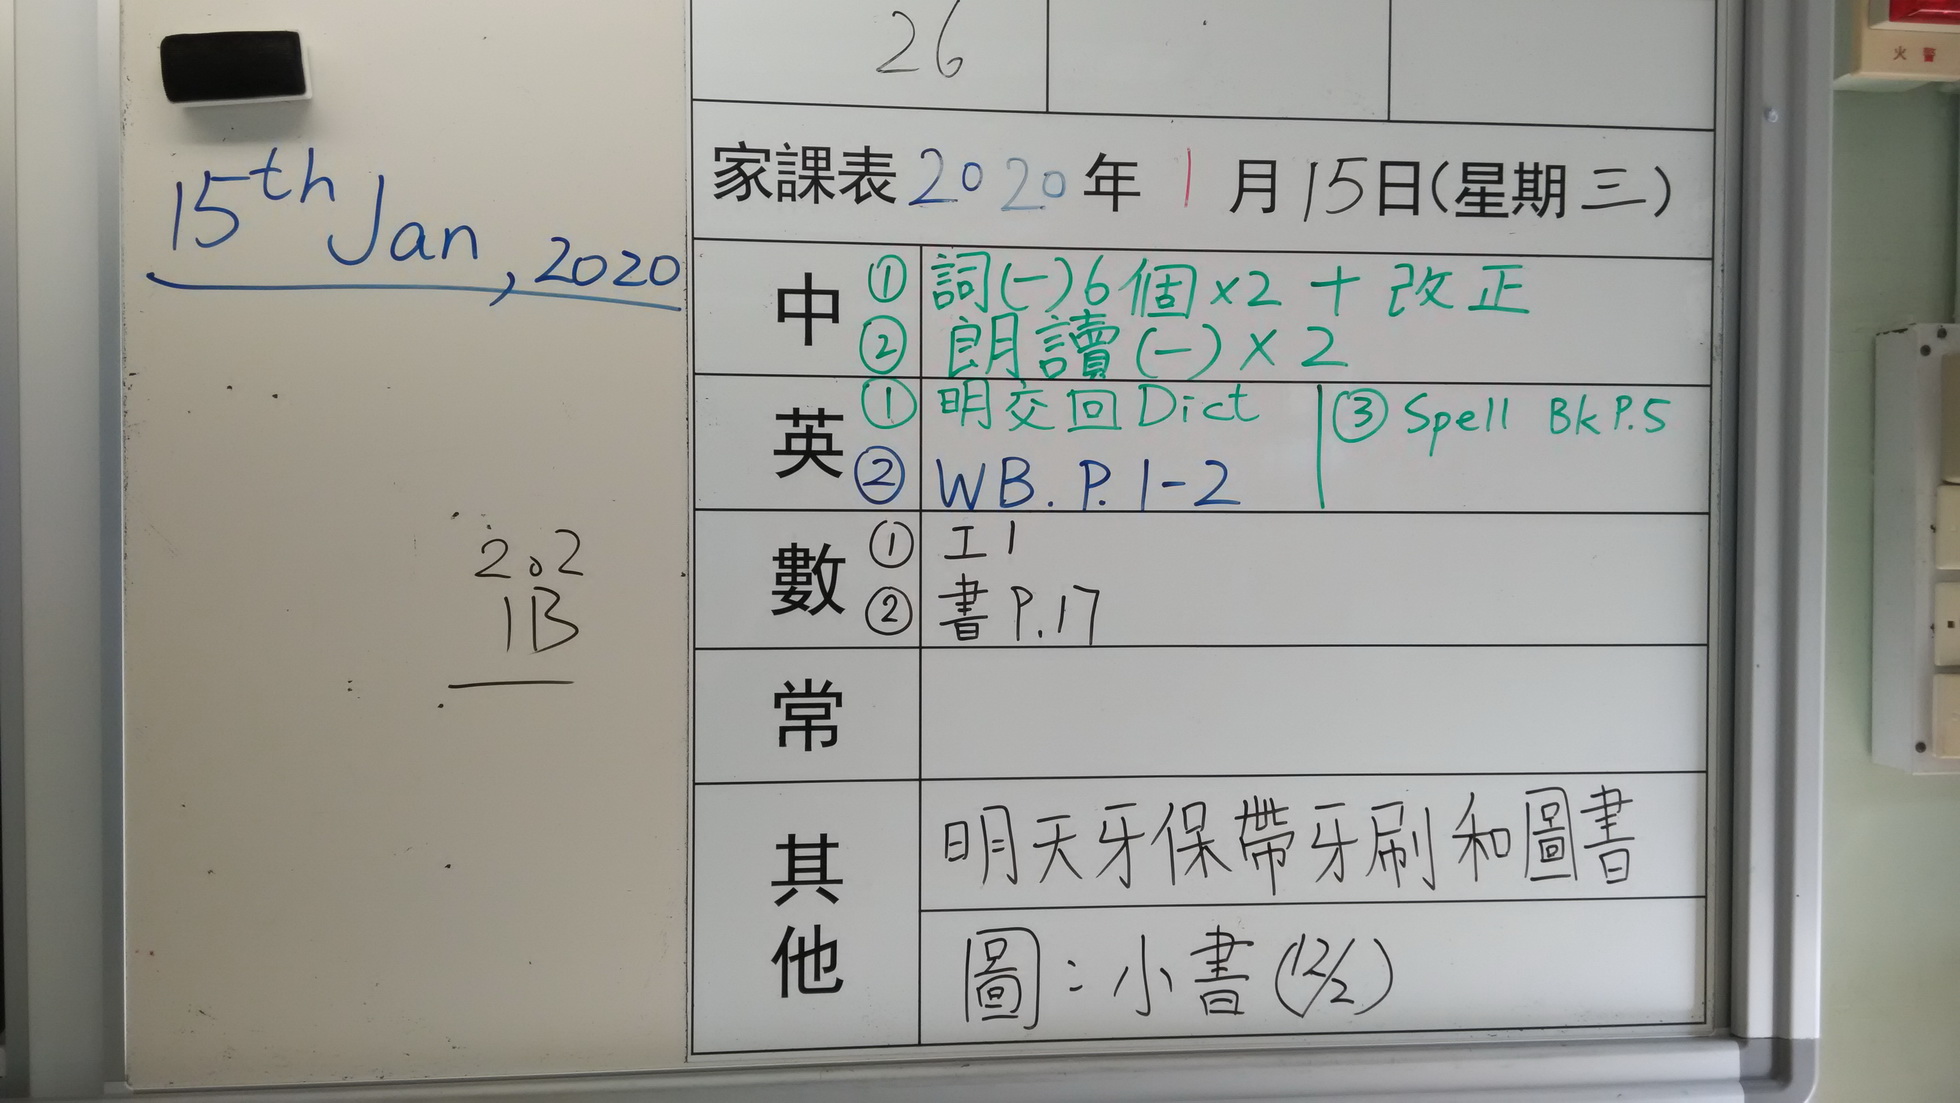 26
火警
15th Jan, 2020
家課表 2020 年 1 月 15 日(星期 三)
中 ① 詞(一)6個×2 + 改正
② 朗讀(一)×2
英 ① 明交回Dict ③ Spell Bk P.5
② WB. P. 1-2
數 ① 工1
② 書 P.17
2.2
1B
常
其他
明天牙保帶牙刷和圖書
圖:小書(12/2)